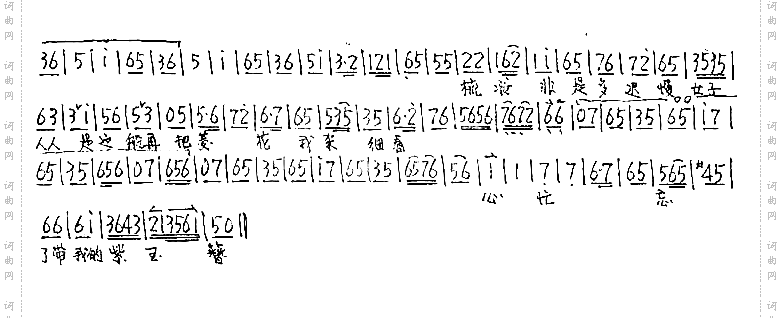 36|5|i|65|36|5|i|65|36|5i|3·2|121|65|55|22|162|1i|65|76|72|65|3535|
梳没 非是多迟慢 女子
63|3i|56|53|05|5·6|72|6·7|65|535|35|6·2|76|5656|7672|66|07|65|35|65|i7|
人人 是 能再 把菱 花 我来 细看
65|35|656|07|656|07|65|35|65|i7|65|35|6576|56|i|i|7|7|6·7|65|565|#45|
心 忙 忘
66|6i|3643|213561|50||
了带 我的 紫 玉 簪
词曲网
词曲网
词曲网
词曲网
词曲网
词曲网